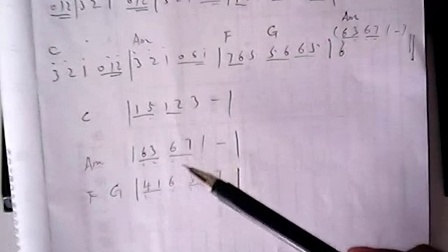 0 12 | 3 2 1 0 12 | 3 2 1
C Am F G Am
3 2 1 0 12 | 3 2 1 0 61 | 7 65 5 6 65 | 6 (63 67 1 -) ||
C | 15 12 3 - |
Am | 63 67 1 - |
F G | 41 6